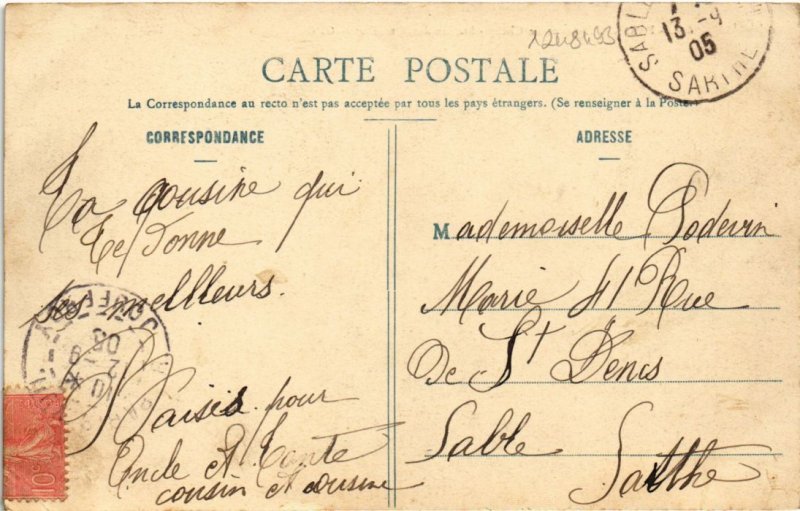 1248493
SABLE 13 -9 05 SARTHE
CARTE POSTALE
La Correspondance au recto n'est pas acceptée par tous les pays étrangers. (Se renseigner à la Poste.)
CORRESPONDANCE
Ta cousine qui
te donne
ses meilleurs
Baisés pour
Oncle et Tante
cousin et cousine
10
ADRESSE
Mademoiselle Podevin
Marie 41 Rue
De St Denis
Sable Sarthe